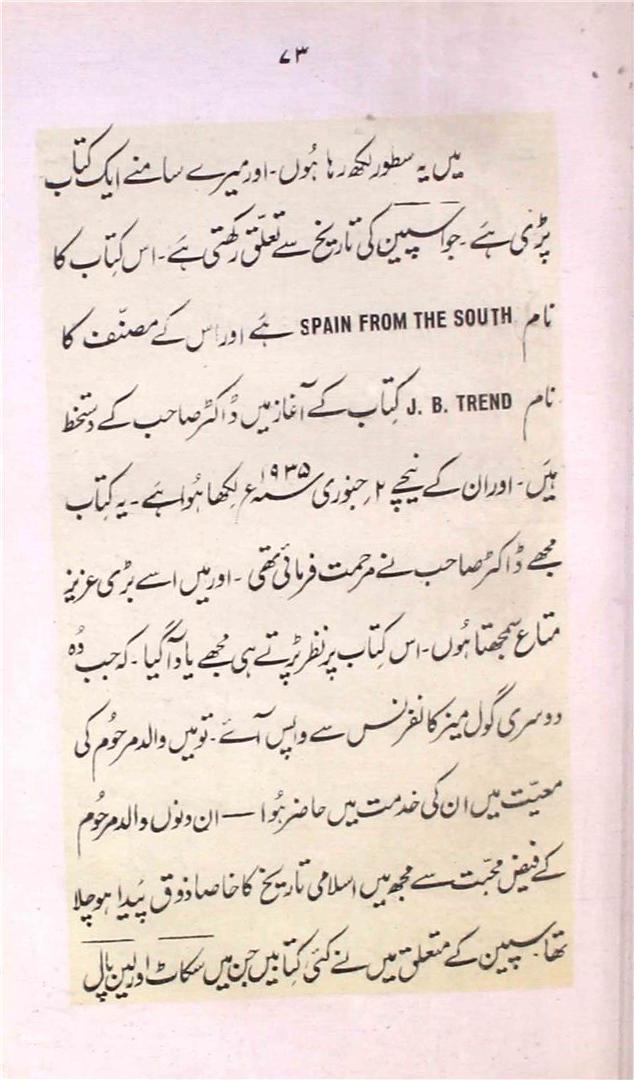 ۷۳
میں یہ سطور لکھ رہا ہُوں۔ اور میرے سامنے ایک کتاب
پڑی ہے۔ جو اسپین کی تاریخ سے تعلّق رکھتی ہے۔ اس کِتاب کا
نام SPAIN FROM THE SOUTH ہے اور اس کے مصنّف کا
نام J. B. TREND کِتاب کے آغاز میں ڈاکٹر صاحب کے دستخط
ہیں۔ اور ان کے نیچے ۲؍ جنوری ۱۹۳۵ء لکھا ہُوا ہے۔ یہ کِتاب
مجھے ڈاکٹر صاحب نے مرحمت فرمائی تھی۔ اور میں اسے بڑی عزیز
متاع سمجھتا ہُوں۔ اس کِتاب پر نظر پڑتے ہی مجھے یاد آ گیا۔ کہ جب وُہ
دوسری گول میز کانفرنس سے واپس آئے۔ تو میں والد مرحُوم کی
معیّت میں ان کی خدمت میں حاضر ہُوا — ان دنوں والد مرحُوم
کے فیض محبّت سے مجھ میں اسلامی تاریخ کا خاصا ذوق پَیدا ہو چلا
تھا۔ سپین کے متعلق میں نے کئی کِتابیں جن میں سکاٹ اور لین پال